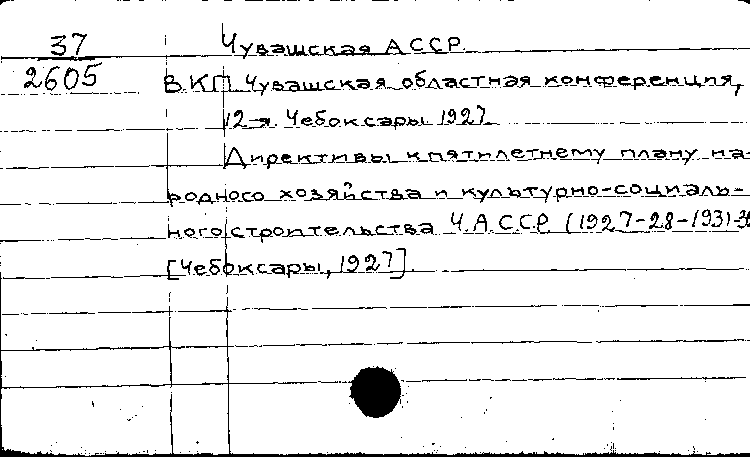 37
Чувашская АССР.
2605
ВКП. Чувашская областная конференция,
12-я. Чебоксары 1927.
Директивы к пятилетнему плану на-
родного хозяйства и культурно-социаль-
ного строительства Ч.А.С.С.Р. (1927-28-1931-3
[Чебоксары, 1927].